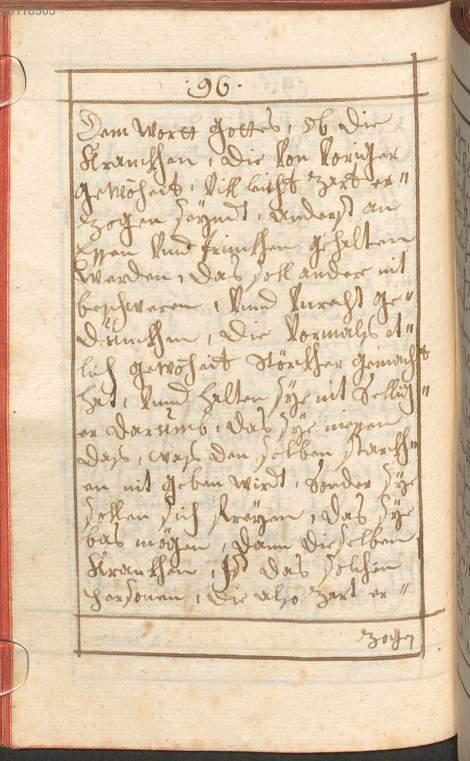 ·96·
Dem Wortt Gottes, Ob die
Kranckhen, die Von Voriger
gewoheit, Villeicht zart er=
zogen seyendt, anderst an
Essen Vnd trinckhen gehalten
werden, das soll andere nit
beschweren, Vnnd Vnrecht ge=
dünckhen, die Vormals et=
lich gewoheit störckher gemacht
hat, Vnnd halten sye nit Sellig=
er darumb, das sye niessen
dass, wass den selben starckh=
en nit geben wirdt, Sonder sye
sollen sich freyen, das sye
bas mögen, dann die selben
Kranckhen, Ist das solchen
Personen, die also zart er=
zogen